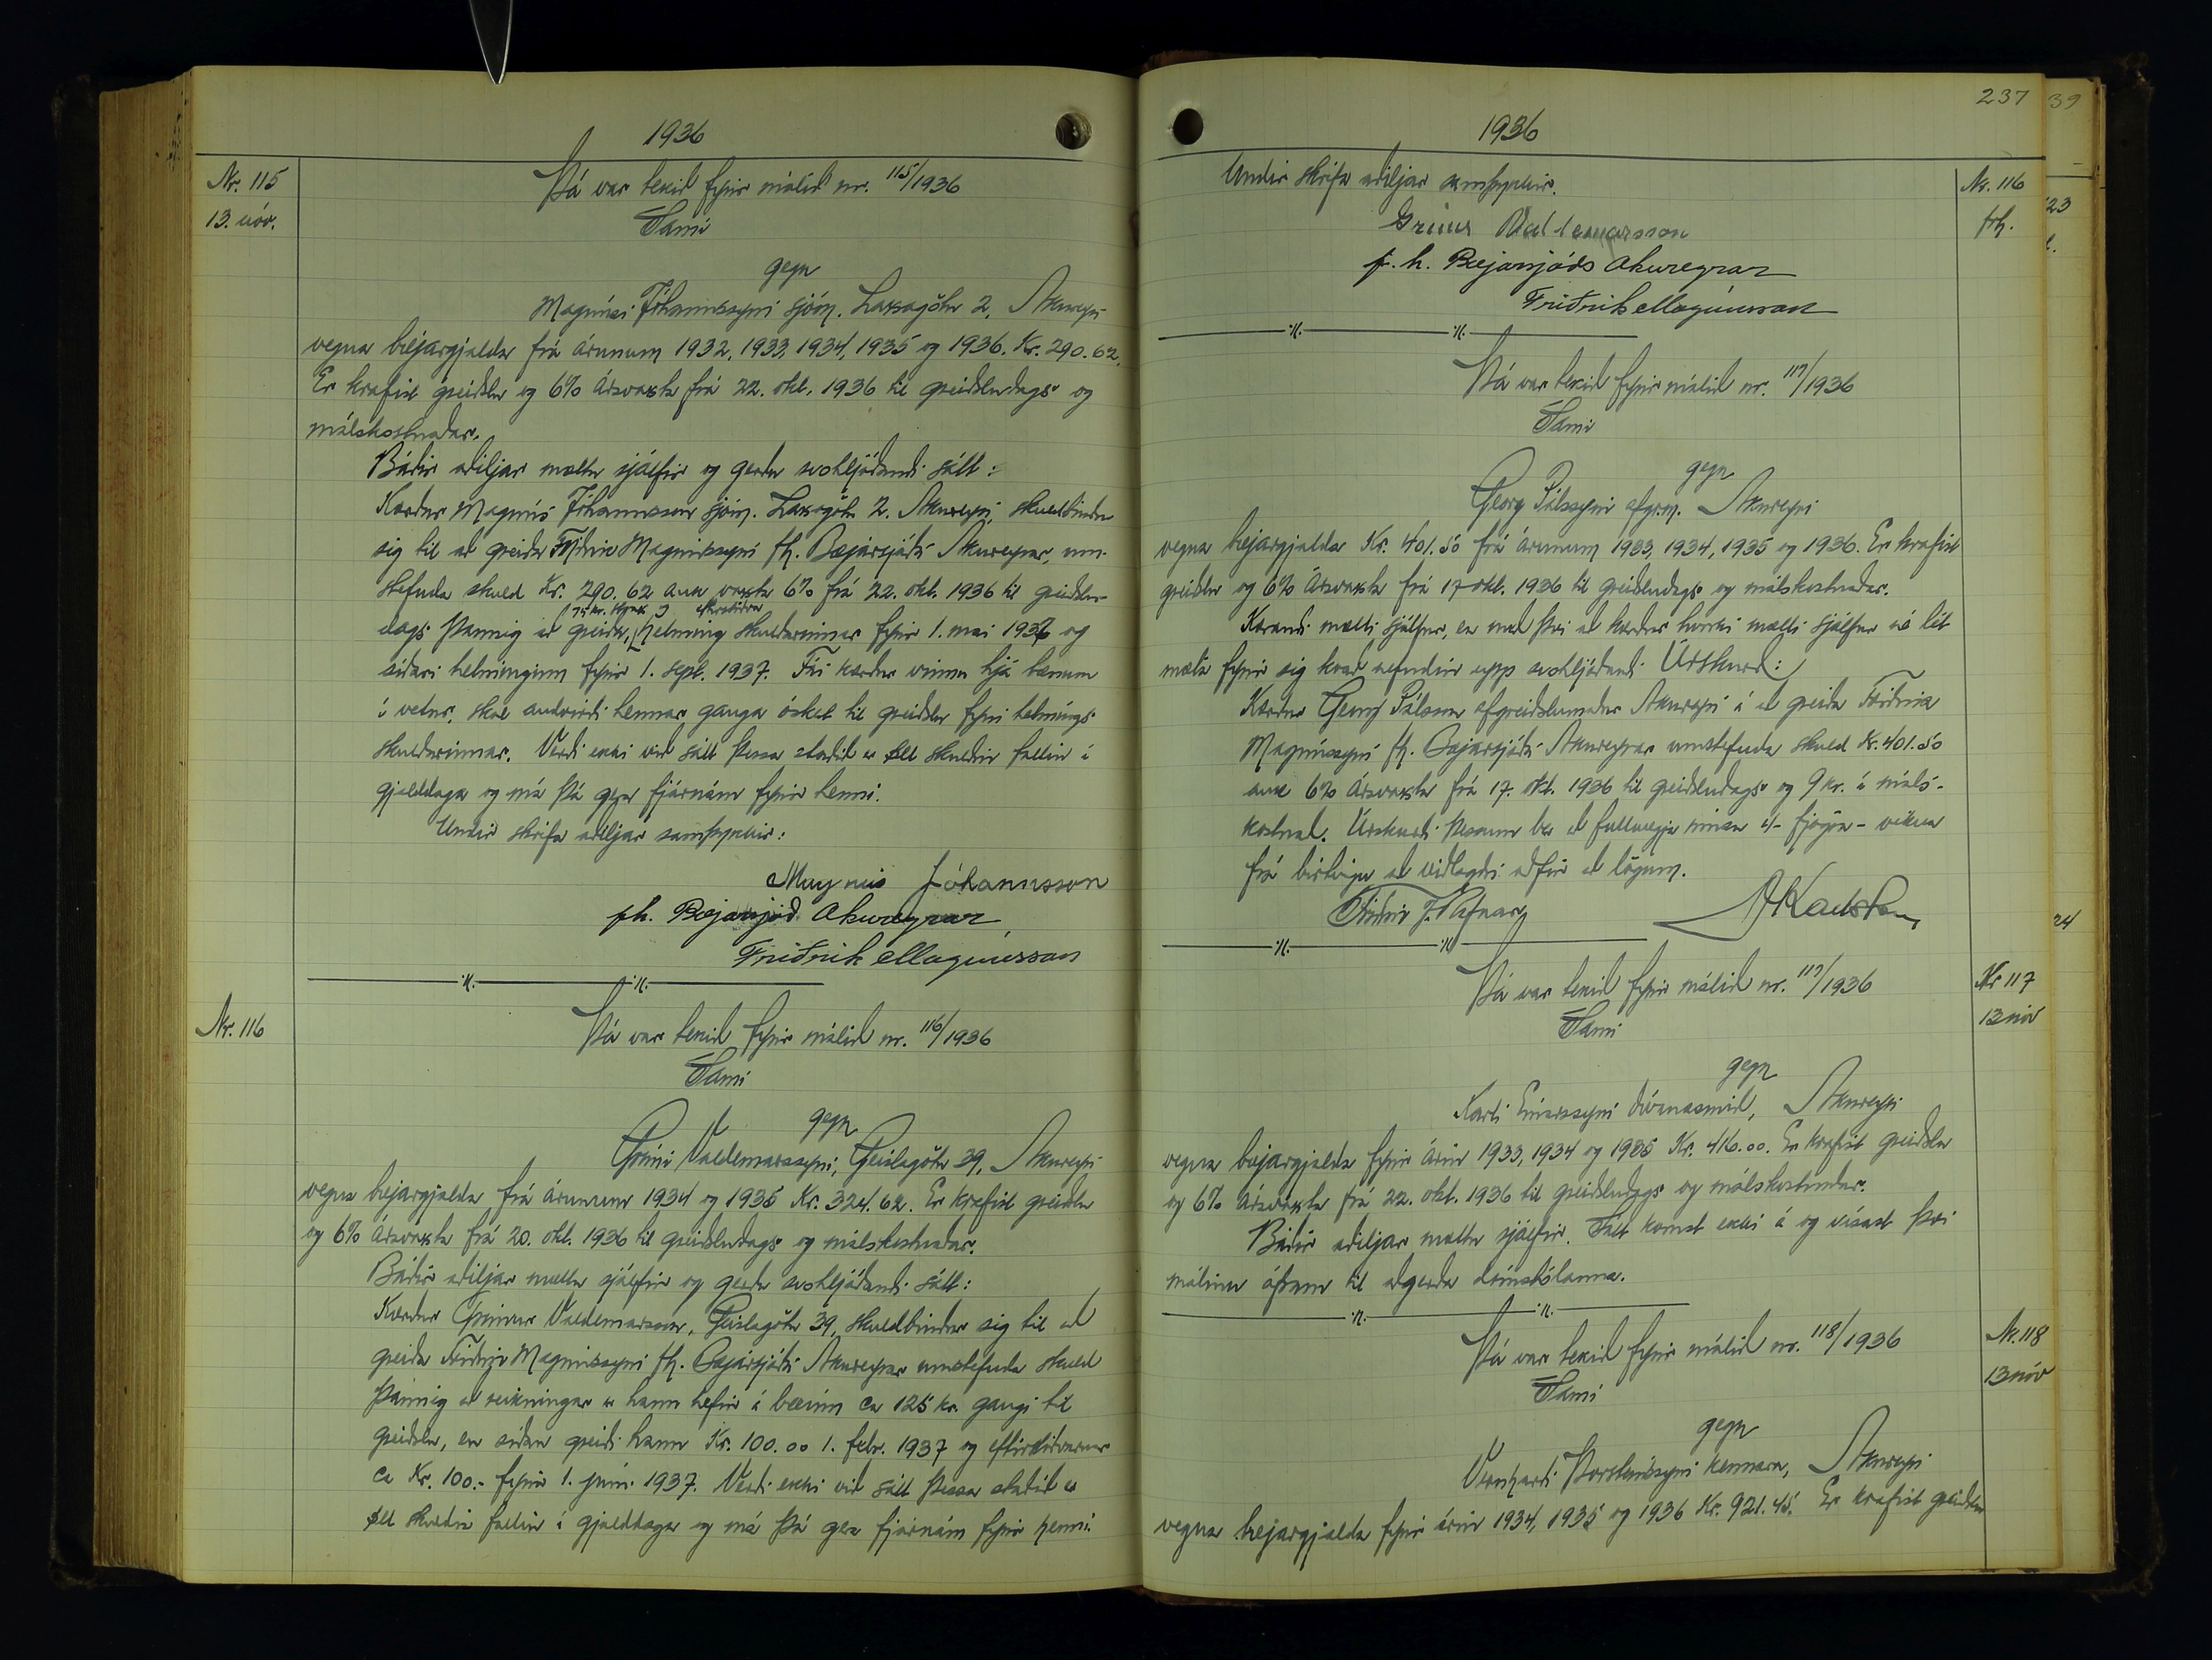 1936
Nr. 115
13. nóv.
Þá var tekið fyrir málið nr. 115/1936
Sami
gegn
Magnúsi Jóhannssyni sjóm. Laxagötu 2, Akureyri
vegna bæjargjalda frá árunum 1932, 1933, 1934, 1935 og 1936. Kr. 290.62.
Er krafist greiðslu og 6% ársvaxta frá 22. okt. 1936 til greiðsludags og
málskostnaðar.
Báðir aðiljar mættu sjálfir og gerðu svohljóðandi sátt:
Kærður Magnús Jóhannsson sjóm. Laxagötu 2. Akureyri, skuldbindur
sig til að greiða Friðrik Magnússyni fh. Bæjarsjóðs Akureyrar, um-
stefnda skuld Kr. 290.62 auk vaxta 6% frá 22. okt. 1936 til greiðslu-
75 kr. strax og
dags þannig að greiða, helming skuldarinnar fyrir 1. maí 1937 og
síðari helminginn fyrir 1. sept. 1937. Fái kærður vinnu hjá bænum
í vetur, skal andvirði hennar ganga óskert til greiðslu fyrri helmings
skuldarinnar. Verði ekki við sátt þessa staðið er öll skuldin fallin í
gjalddaga og má þá gera fjárnám fyrir henni.
Undir skrifa aðiljar samþykkir:
Magnús Jóhannsson
fh. Bæjarsjóð Akureyrar,
Friðrik Magnússon
Nr. 116
Þá var tekið fyrir málið nr. 116/1936
Sami
gegn
Grími Valdemarssyni, Geislagötu 39, Akureyri
vegna bæjargjalda frá árunum 1934 og 1935 Kr. 324.62. Er krafist greiðslu
og 6% ársvaxta frá 20. okt. 1936 til greiðsludags og málskostnaðar.
Báðir aðiljar mættu sjálfir og gerðu svohljóðandi sátt:
Kærður Grímur Valdemarsson, Geislagötu 39, skuldbindur sig til að
greiða Friðrik Magnússyni fh. Bæjarsjóðs Akureyrar umstefnda skuld
þannig að reikningar er hann hefir á bæinn ca 125 kr. gangi til
greiðslu, en síðan greiði hann Kr. 100.00 1. febr. 1937 og eftirstöðvarnar
ca Kr. 100.- fyrir 1. júní 1937. Verði ekki við sátt þessa staðið er
öll skuldin fallin í gjalddaga og má þá gera fjárnám fyrir henni.
237
39
1936
Nr. 116
frh.
Undir skrifa aðiljar samþykkir.
Grímur Valdemarsson
f. h. Bæjarsjóðs Akureyrar
Friðrik Magnússon
Þá var tekið fyrir málið nr. 117/1936
Sami
gegn
Georg Pálssyni afgrm. Akureyri
vegna bæjargjalda Kr. 401.50 frá árunum 1933, 1934, 1935 og 1936. Er krafist
greiðslu og 6% ársvaxta frá 17 okt. 1936 til greiðsludags og málskostnaðar.
Kærandi mætti sjálfur, en með því að kærður hvorki mætti sjálfur né lét
mæta fyrir sig kvað nefndin upp svohljóðandi Úrskurð:
Kærður Georg Pálsson afgreiðslumaður Akureyri á að greiða Friðrik
Magnússyni fh. Bæjarsjóðs Akureyrar umstefnda skuld Kr. 401.50
auk 6% ársvaxta frá 17. okt. 1936 til greiðsludags og 9 kr. í máls-
kostnað. Úrskurði þessum ber að fullnægja innan 4 - fjögra - vikna
frá birtingu að viðlagðri aðför að lögum.
Friðrik J. Rafnar
Þá var tekið fyrir málið nr. 117/1936
Sami
Nr 117
13 nóv
gegn
Karli Einarssyni dívanasmið, Akureyri
vegna bæjargjalda fyrir árin 1933, 1934 og 1935 Kr. 416.00. Er krafist greiðslu
og 6% ársvaxta frá 22. okt. 1936 til greiðsludags og málskostnaðar.
Báðir aðiljar mættu sjálfir. Sátt komst ekki á og vísast því
málinu áfram til aðgerða dómstólanna.
Þá var tekið fyrir málið nr. 118/1936
Sami
Nr. 118
13 nóv
gegn
Vernharði Þorsteinssyni kennara, Akureyri
vegna bæjargjalda fyrir árin 1934, 1935 og 1936 Kr. 921.45. Er krafist greiðslu